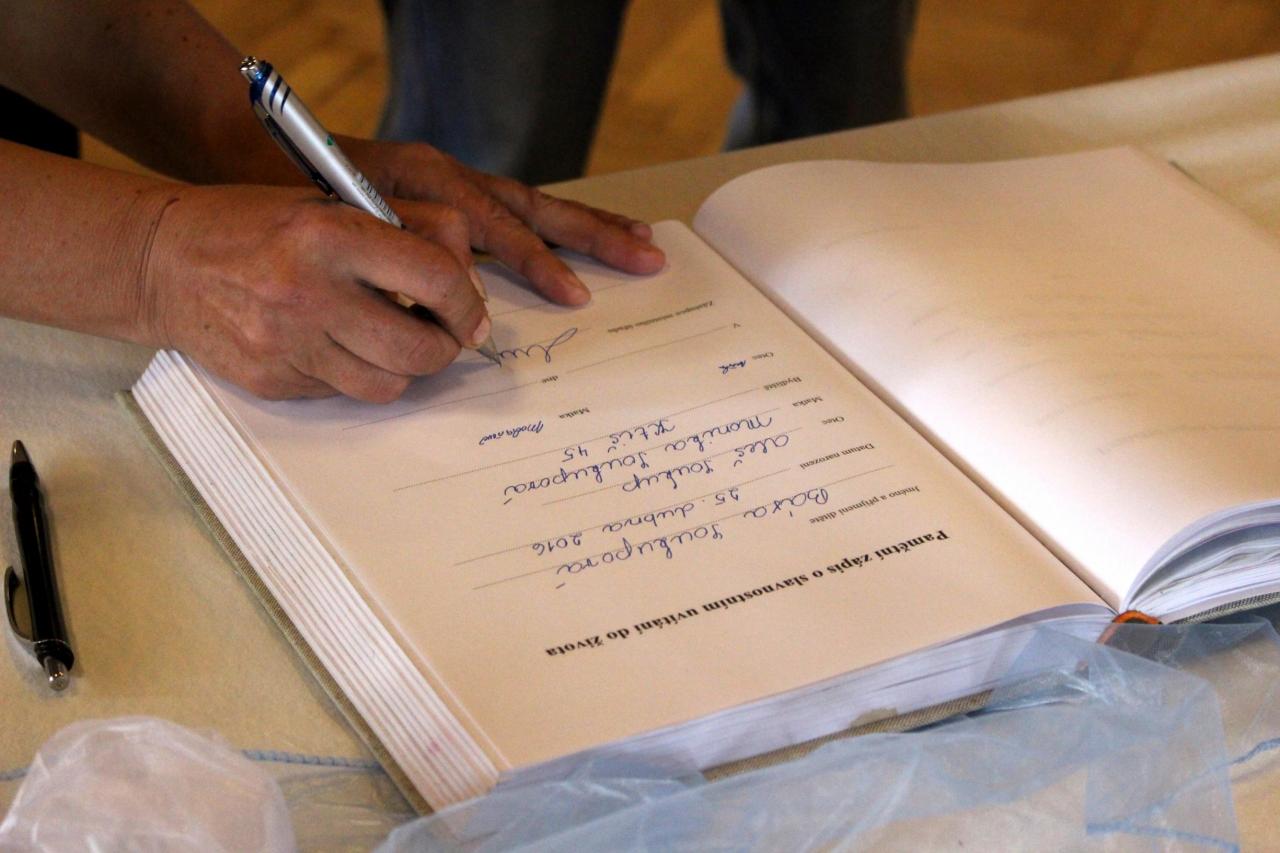 Pamětní zápis o slavnostním uvítání do života
Jméno a příjmení dítěte Bára Soukupová
Datum narození 25. dubna 2016
Otec Aleš Soukup
Matka Monika Soukupová
Bydliště Ktiš 45
Otec Matka
V dne
Zástupce místního úřadu